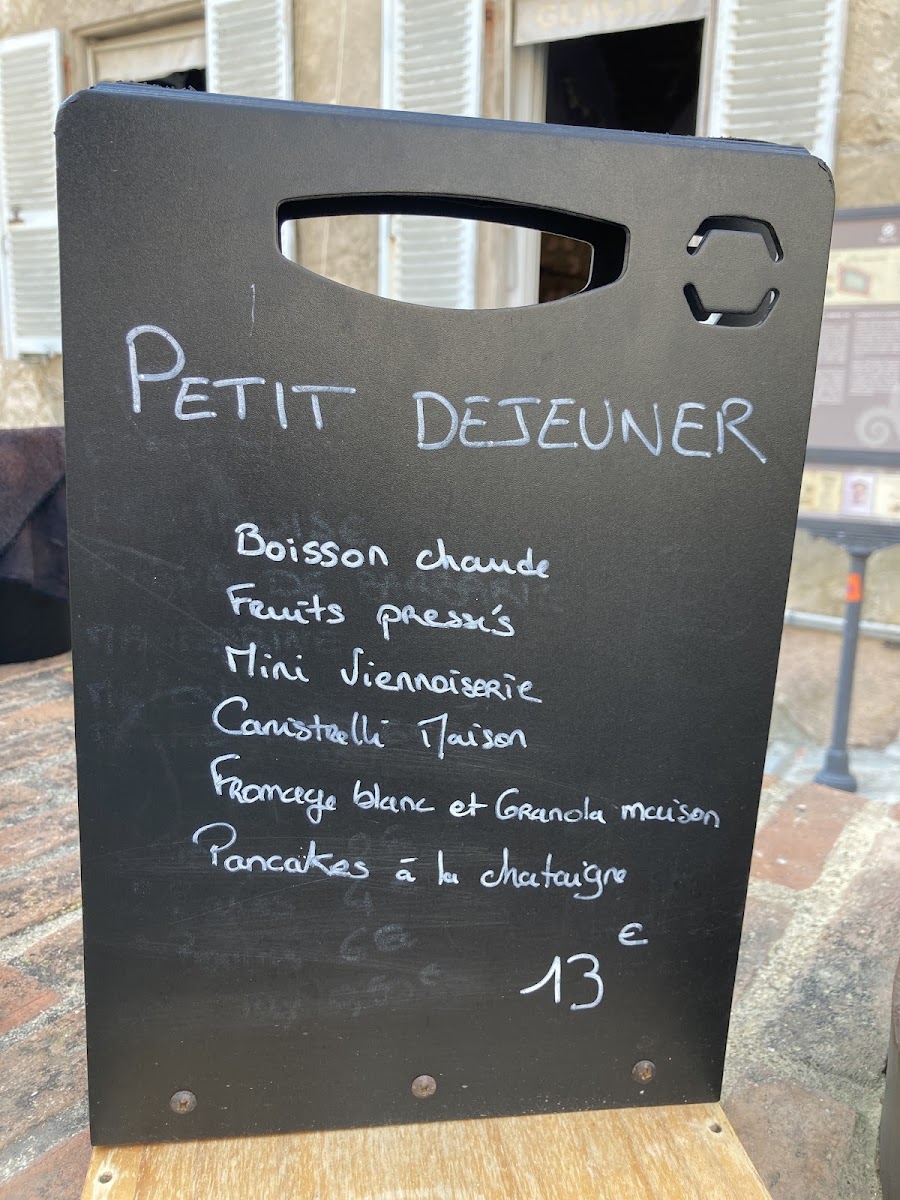 GLACIER
PETIT DEJEUNER
Boisson chaude
Fruits pressés
Mini Viennoiserie
Canistrelli Maison
Fromage blanc et Granola maison
Pancakes à la chataigne
13 €